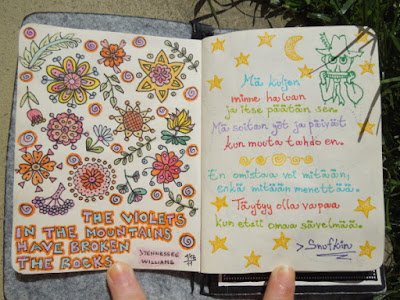 THE VIOLETS
IN THE MOUNTAINS
HAVE BROKEN
THE ROCKS.
> TENNESSEE
WILLIAMS
Mä kuljen
minne haluan
ja itse päätän sen.
Mä soitan yöt ja päivät
kun muuta tahdo en.
En omistaa voi mitään,
enkä mitään menettää.
Täytyy olla vapaa
kun etsii omaa sävelmää.
> Snufkin